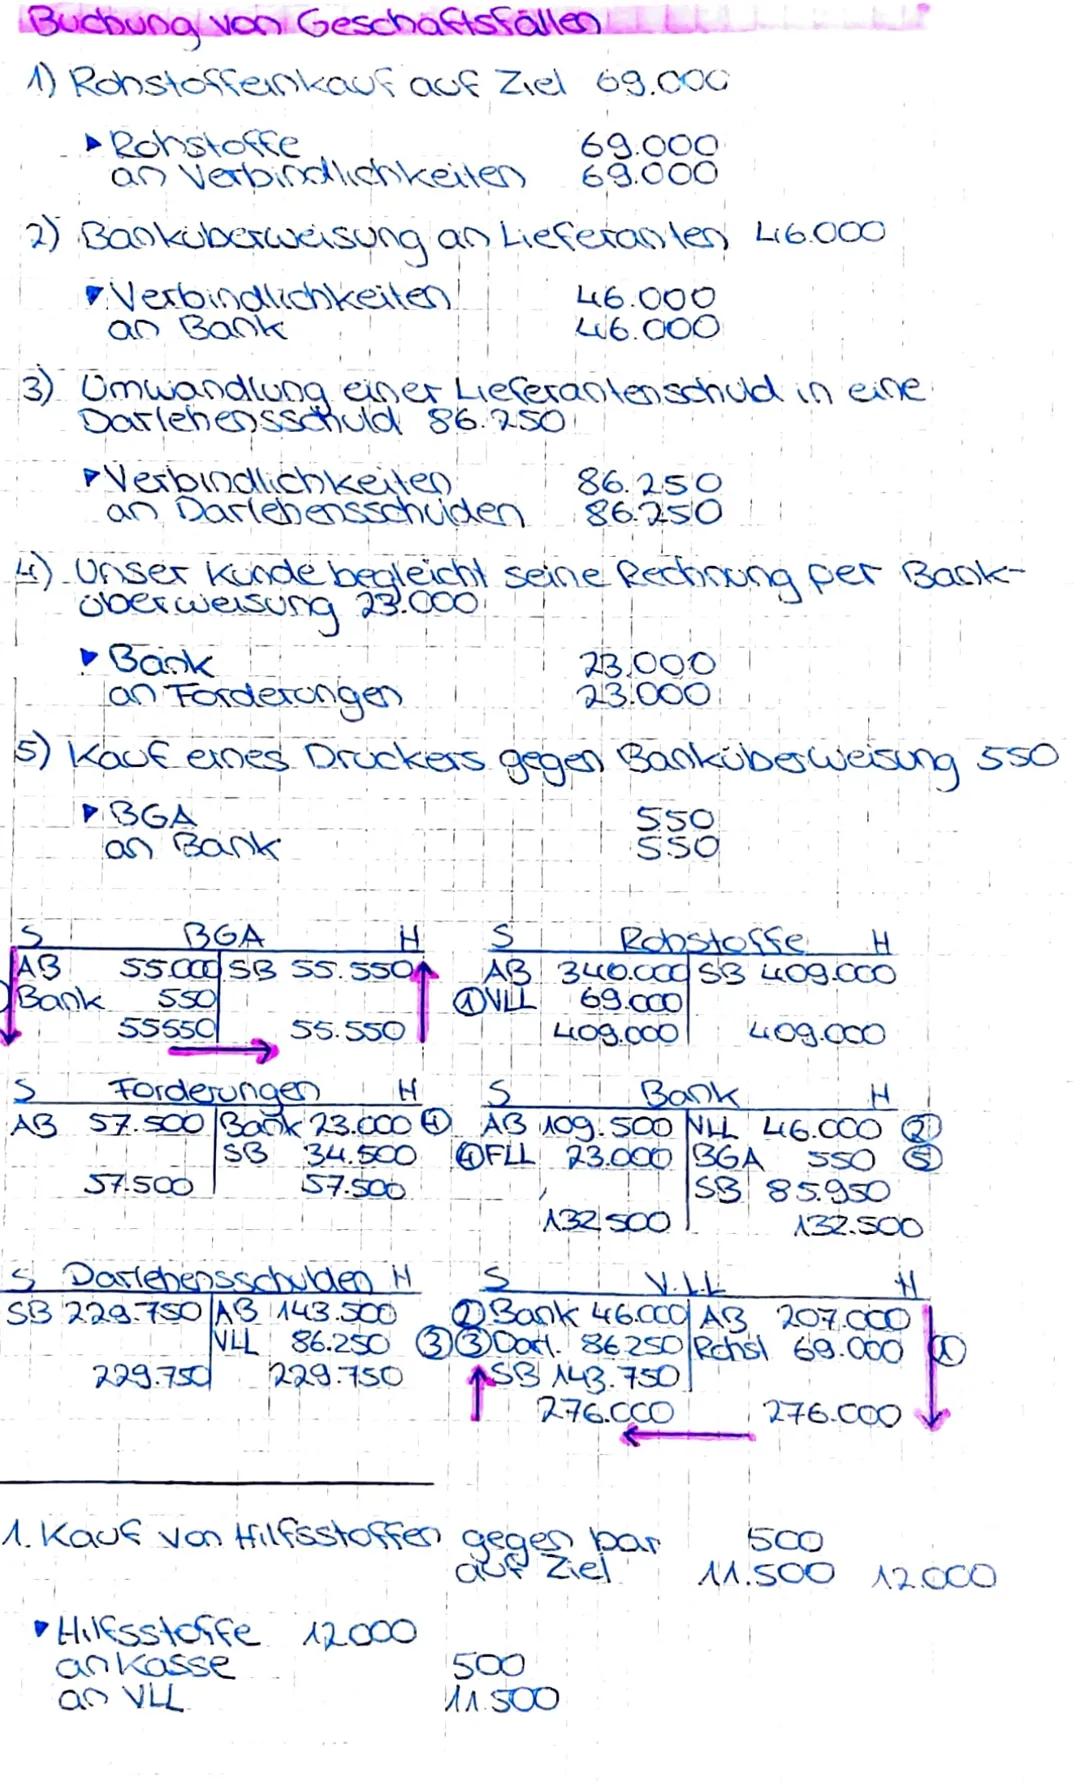 Buchung von Geschäftsfällen
1) Rohstoffeinkauf auf Ziel 69.000
▸ Rohstoffe 69.000
an Verbindlichkeiten 69.000
2) Banküberweisung an Lieferanten 46.000
▸ Verbindlichkeiten 46.000
an Bank 46.000
3) Umwandlung einer Lieferantenschuld in eine
Darlehensschuld 86.250
▸ Verbindlichkeiten 86.250
an Darlehensschulden 86.250
4) Unser Kunde begleicht seine Rechnung per Bank-
überweisung 23.000
▸ Bank 23.000
an Forderungen 23.000
5) Kauf eines Druckers gegen Banküberweisung 550
▸ BGA 550
an Bank 550
S BGA H
AB 55.000 SB 55.550
Bank 550
55550 55.550
S Rohstoffe H
AB 340.000 SB 409.000
① VLL 69.000
409.000 409.000
S Forderungen H
AB 57.500 Bank 23.000 ④
SB 34.500
57.500 57.500
S Bank H
AB 109.500 VLL 46.000 ②
④ FLL 23.000 BGA 550 ⑤
SB 85.950
132.500 132.500
S Darlehensschulden H
SB 229.750 AB 143.500
VLL 86.250 ③
229.750 229.750
S V.L.L H
② Bank 46.000 AB 207.000
③ Darl. 86250 Rohst 69.000 ①
SB 143.750
276.000 276.000
1. Kauf von Hilfsstoffen gegen bar 500
auf Ziel 11.500 12.000
▸ Hilfsstoffe 12000
an Kasse 500
an VLL 11.500